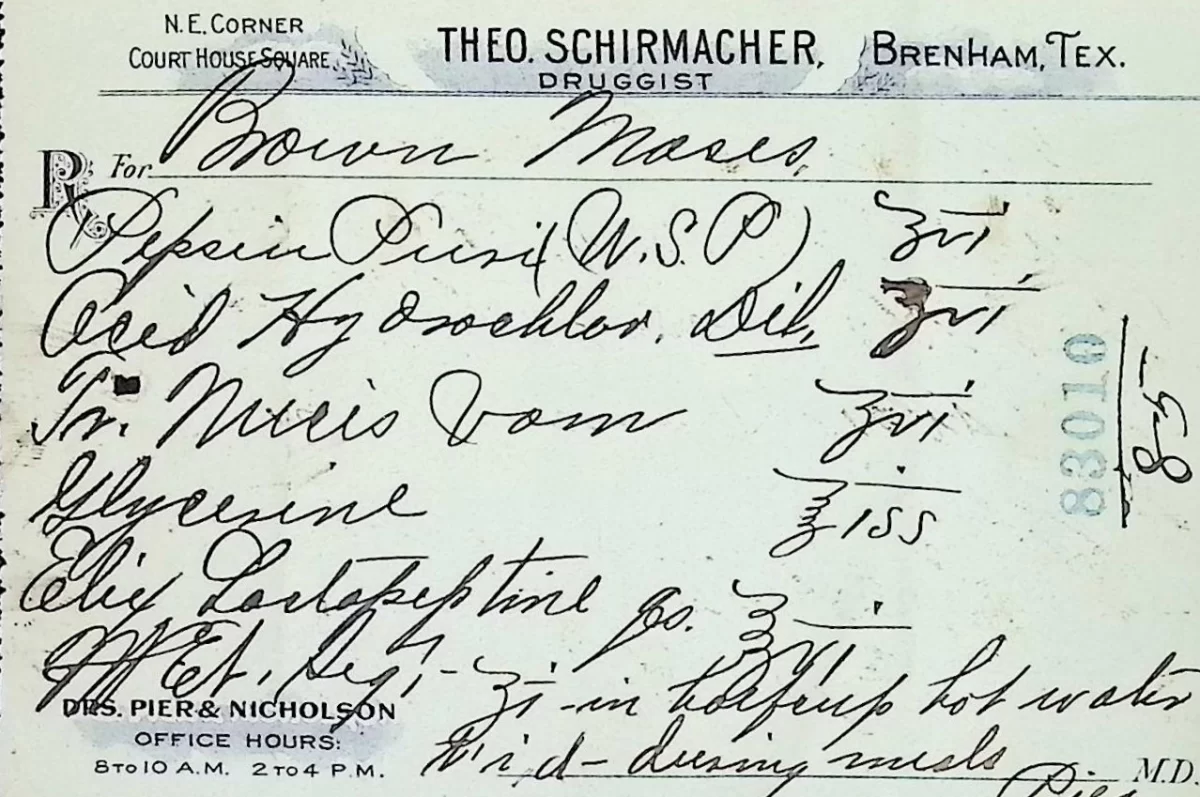 N. E. CORNER
COURT HOUSE SQUARE
THEO. SCHIRMACHER,
DRUGGIST
BRENHAM, TEX.
R For Brown Moses
Pepsin Puri (W.S.P) ʒvi
Acid Hydrochlor. Dil, ʒvi
Tr. Nucis Vom ʒvi
Glycerine ℥iss
Elix Lactopeptine qs. ℥vi
M Et. Sig, - ʒi - in half cup hot water
t i d - during meals
83010
85
DRS. PIER & NICHOLSON
OFFICE HOURS:
8 TO 10 A.M. 2 TO 4 P.M.
M.D.